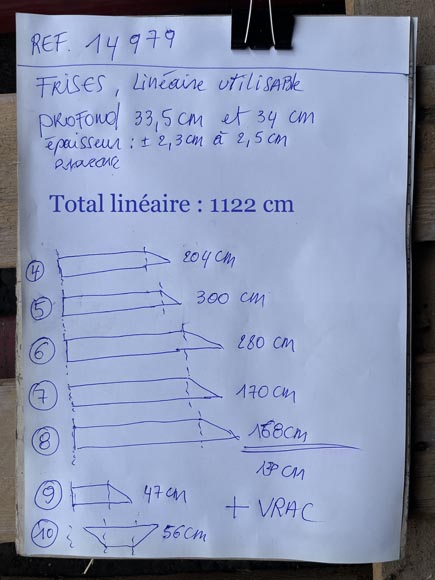 REF. 14979
FRISES, Linéaire utilisable
profond 33,5 cm et 34 cm
épaisseur : ± 2,3cm à 2,5cm
Total linéaire : 1122 cm
4 204 cm
5 300 cm
6 280 cm
7 170 cm
8 168cm
cm
9 47cm
+ VRAC
10 56cm